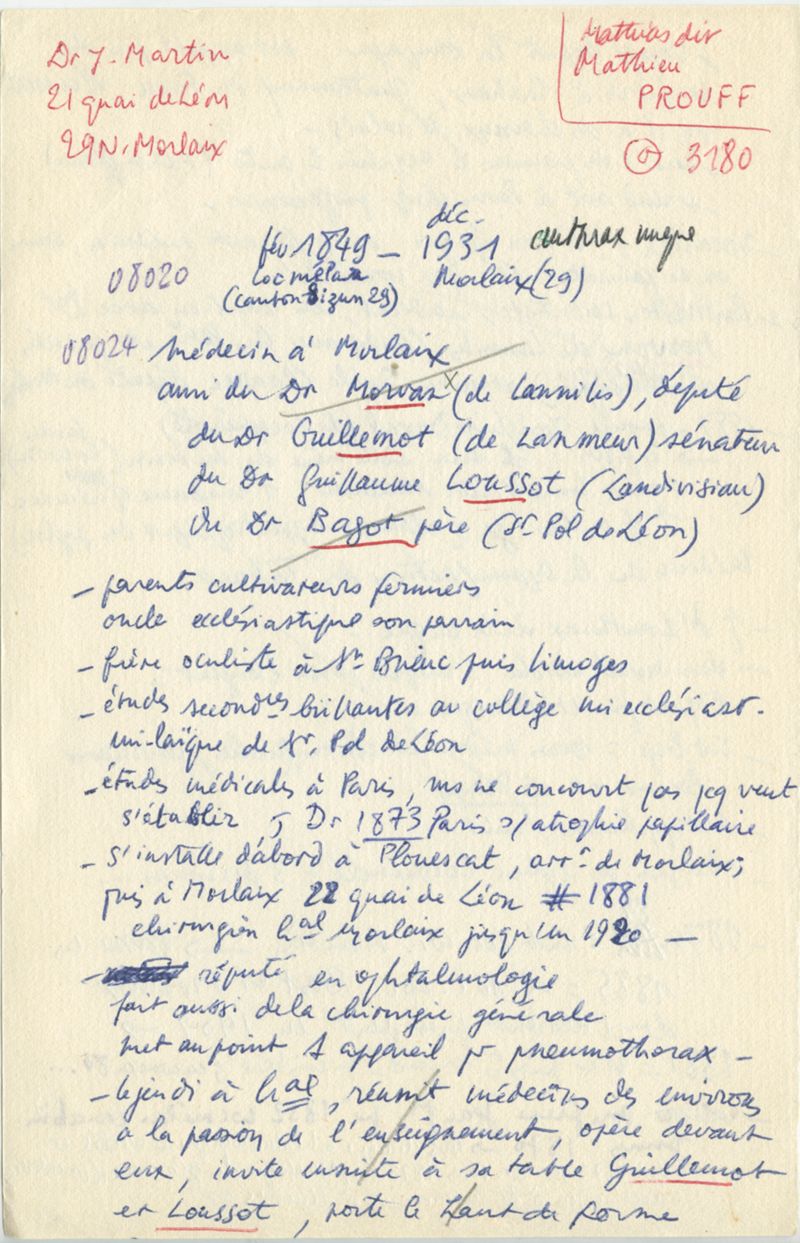 Dr J. Martin
21 quai de Léon
29N. Morlaix
Mathias dit
Mathieu
PROUFF
3180
fév 1849 – déc. 1931 anthrax nuque
08020 Locmélar Morlaix (29)
(canton Sizun 29)
08024 médecin à Morlaix
ami du Dr Morvan x (de Lannilis), député
du Dr Guillemot (de Lanmeur) sénateur
du Dr Guillaume Loussot (Landivisiau)
du Dr Bagot père (St Pol de Léon)
– parents cultivateurs fermiers
oncle ecclésiastique son parrain
– frère oculiste à St Brieuc puis Limoges
– études secondres brillantes au collège mi ecclésiast-
mi-laïque de St. Pol de Léon
– études médicales à Paris, ms ne concourt pas pcq veut
s'établir, Dr 1873 Paris s/ atrophie papillaire
– s'installe d'abord à Plouescat, arrt de Morlaix;
puis à Morlaix 22 quai de Léon # 1881
chirurgien hal Morlaix jusqu'en 1920 —
– réputé en ophtalmologie
fait aussi de la chirurgie générale
met au point 1 appareil pr pneumothorax –
– le jeudi à hal, réunit médecins des environs
a la passion de l'enseignement opère devant
eux, invite ensuite à sa table Guillemot
et Loussot, porte le haut de forme